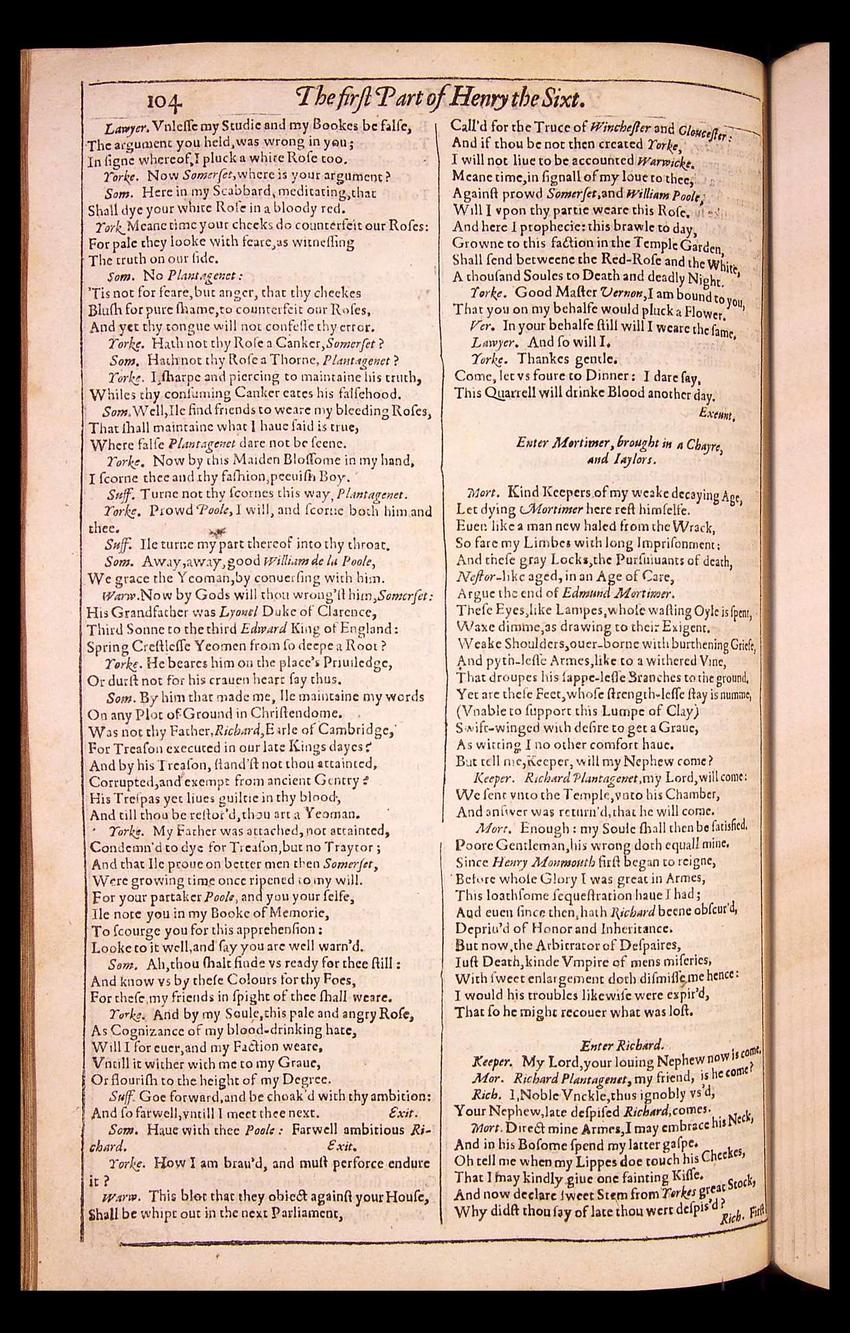 104
The first Part of Henry the Sixt.
Lawyer. Vnlesse my Studie and my Bookes be false,
The argument you held, was wrong in you;
In signe whereof, I pluck a white Rose too.
Yorke. Now Somerset, where is your argument?
Som. Here in my Scabbard, meditating, that
Shall dye your white Rose in a bloody red.
York. Meane time your cheeks do counterfeit our Roses:
For pale they looke with feare, as witnessing
The truth on our side.
Som. No Plantagenet:
'Tis not for feare, but anger, that thy cheekes
Blush for pure shame, to counterfeit our Roses,
And yet thy tongue will not confesse thy error.
Yorke. Hath not thy Rose a Canker, Somerset?
Som. Hath not thy Rose a Thorne, Plantagenet?
Yorke. I, sharpe and piercing to maintaine his truth,
Whiles thy consuming Canker eates his falsehood.
Som. Well, Ile find friends to weare my bleeding Roses,
That shall maintaine what I haue said is true,
Where false Plantagenet dare not be seene.
Yorke. Now by this Maiden Blossome in my hand,
I scorne thee and thy fashion, peeuish Boy.
Suff. Turne not thy scornes this way, Plantagenet.
Yorke. Prowd Poole, I will, and scorne both him and
thee.
Suff. Ile turne my part thereof into thy throat.
Som. Away, away, good William de la Poole,
We grace the Yeoman, by conuersing with him.
Warw. Now by Gods will thou wrong'st him, Somerset:
His Grandfather was Lyonel Duke of Clarence,
Third Sonne to the third Edward King of England:
Spring Crestlesse Yeomen from so deepe a Root?
Yorke. He beares him on the place's Priuiledge,
Or durst not for his crauen heart say thus.
Som. By him that made me, Ile maintaine my words
On any Plot of Ground in Christendome.
Was not thy Father, Richard, Earle of Cambridge,
For Treason executed in our late Kings dayes?
And by his Treason, stand'st not thou attainted,
Corrupted, and exempt from ancient Gentry?
His Trespas yet liues guiltie in thy blood,
And till thou be restor'd, thou art a Yeoman.
Yorke. My Father was attached, not attainted,
Condemn'd to dye for Treason, but no Traytor;
And that Ile proue on better men then Somerset,
Were growing time once ripened to my will.
For your partaker Poole, and you your selfe,
Ile note you in my Booke of Memorie,
To scourge you for this apprehension:
Looke to it well, and say you are well warn'd.
Som. Ah, thou shalt finde vs ready for thee still:
And know vs by these Colours for thy Foes,
For these, my friends in spight of thee shall weare.
Yorke. And by my Soule, this pale and angry Rose,
As Cognizance of my blood-drinking hate,
Will I for euer, and my Faction weare,
Vntill it wither with me to my Graue,
Or flourish to the height of my Degree.
Suff. Goe forward, and be choak'd with thy ambition:
And so farwell, vntill I meet thee next. Exit.
Som. Haue with thee Poole: Farwell ambitious Ri-
chard. Exit.
Yorke. How I am brau'd, and must perforce endure
it?
Warw. This blot that they obiect against your House,
Shall be whipt out in the next Parliament,
Call'd for the Truce of Winchester and Gloucester:
And if thou be not then created Yorke,
I will not liue to be accounted Warwicke.
Meane time, in signall of my loue to thee,
Against prowd Somerset, and William Poole,
Will I vpon thy partie weare this Rose.
And here I prophecie: this brawle to day,
Growne to this faction in the Temple Garden,
Shall send betweene the Red-Rose and the White,
A thousand Soules to Death and deadly Night.
Yorke. Good Master Vernon, I am bound to you,
That you on my behalfe would pluck a Flower.
Ver. In your behalfe still will I weare the same,
Lawyer. And so will I.
Yorke. Thankes gentle.
Come, let vs foure to Dinner: I dare say,
This Quarrell will drinke Blood another day.
Exeunt,
Enter Mortimer, brought in a Chayre,
and Iaylors.
Mort. Kind Keepers of my weake decaying Age,
Let dying Mortimer here rest himselfe.
Euen like a man new haled from the Wrack,
So fare my Limbes with long Imprisonment:
And these gray Locks, the Pursuiuants of death,
Nestor-like aged, in an Age of Care,
Argue the end of Edmund Mortimer.
These Eyes, like Lampes, whose wasting Oyle is spent,
Waxe dimme, as drawing to their Exigent.
Weake Shoulders, ouer-borne with burthening Griefe,
And pyth-lesse Armes, like to a withered Vine,
That droupes his sappe-lesse Branches to the ground.
Yet are these Feet, whose strength-lesse stay is numme,
(Vnable to support this Lumpe of Clay)
Swift-winged with desire to get a Graue,
As witting I no other comfort haue.
But tell me, Keeper, will my Nephew come?
Keeper. Richard Plantagenet, my Lord, will come:
We sent vnto the Temple, vnto his Chamber,
And answer was return'd, that he will come.
Mort. Enough: my Soule shall then be satisfied.
Poore Gentleman, his wrong doth equall mine.
Since Henry Monmouth first began to reigne,
Before whose Glory I was great in Armes,
This loathsome sequestration haue I had;
And euen since then, hath Richard beene obscur'd,
Depriu'd of Honor and Inheritance.
But now, the Arbitrator of Despaires,
Iust Death, kinde Vmpire of mens miseries,
With sweet enlargement doth dismisse me hence:
I would his troubles likewise were expir'd,
That so he might recouer what was lost.
Enter Richard.
Keeper. My Lord, your louing Nephew now is come.
Mor. Richard Plantagenet, my friend, is he come?
Rich. I, Noble Vnckle, thus ignobly vs'd,
Your Nephew, late despised Richard, comes.
Mort. Direct mine Armes, I may embrace his Neck,
And in his Bosome spend my latter gaspe.
Oh tell me when my Lippes doe touch his Cheekes,
That I may kindly giue one fainting Kisse.
And now declare sweet Stem from Yorkes great Stock,
Why didst thou say of late thou wert despis'd?
Rich. First